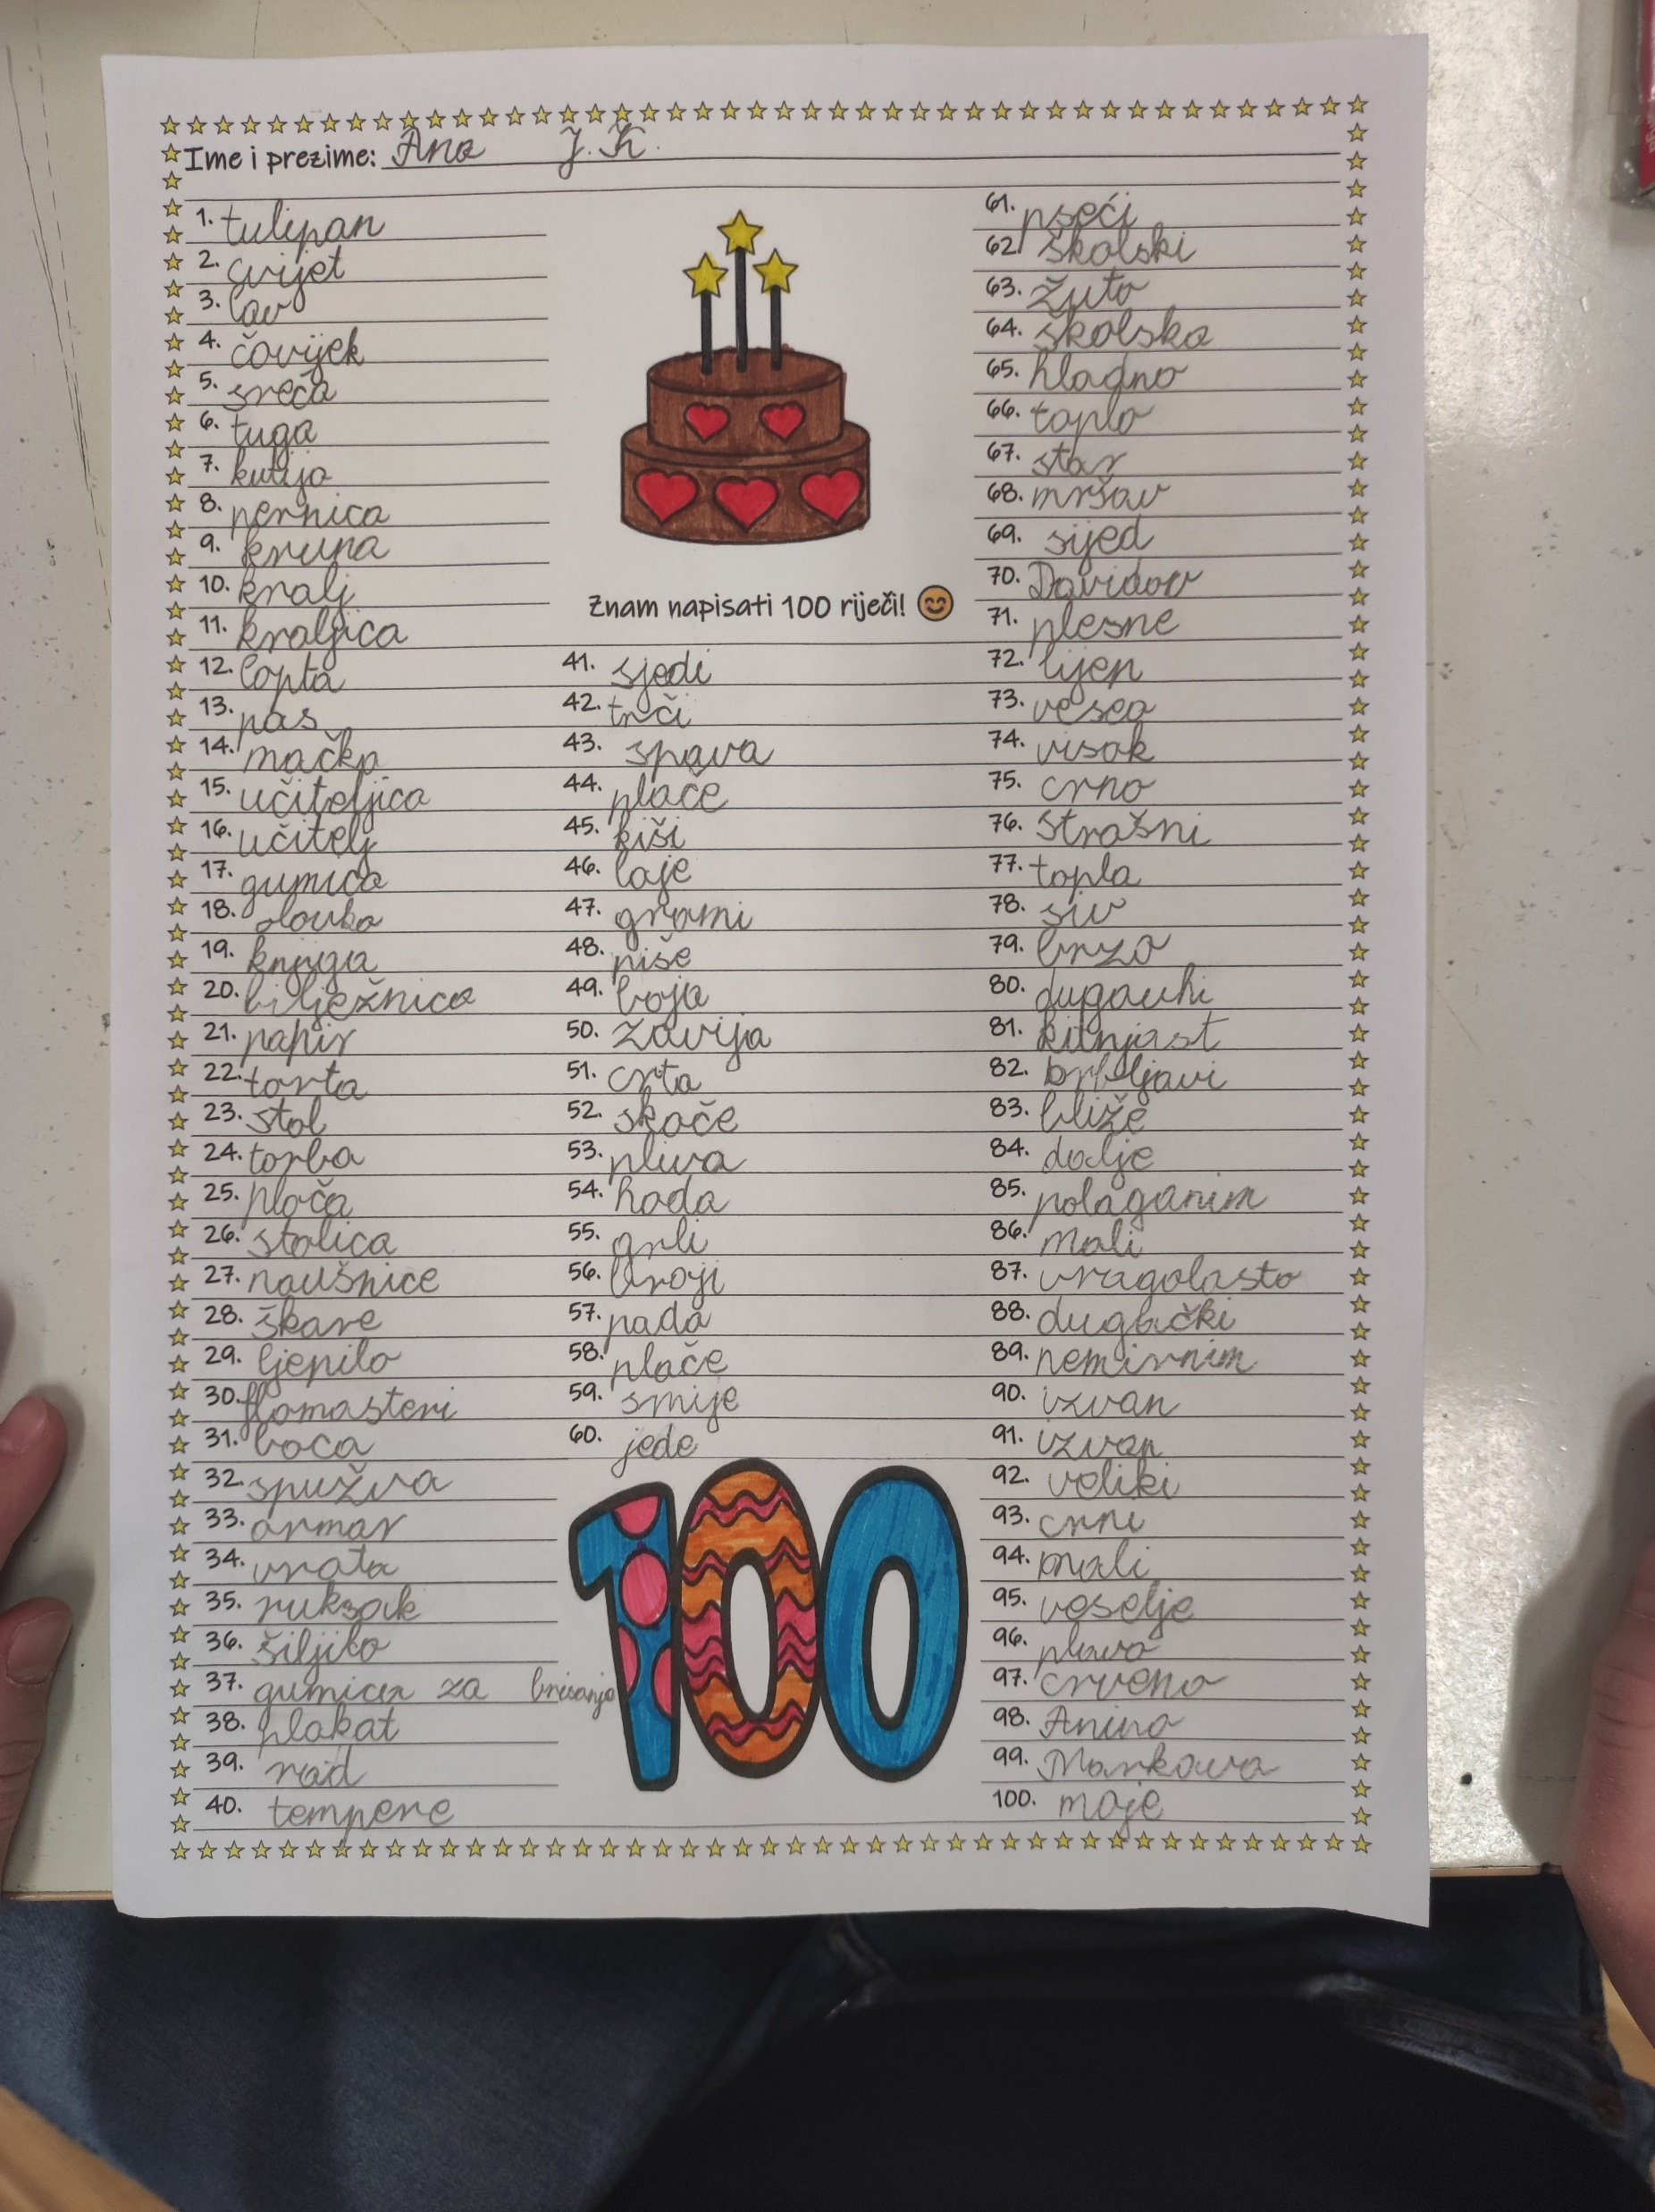 Ime i prezime: Ana J. K.
1. tulipan
2. cvijet
3. lav
4. čovijek
5. sreća
6. tuga
7. kutija
8. pernica
9. kruna
10. kralj
11. kraljica
12. lopta
13. pas
14. mačka
15. učiteljica
16. učitelj
17. gumica
18. olovka
19. knjiga
20. bilježnica
21. papir
22. torta
23. stol
24. torba
25. ploča
26. stolica
27. naušnice
28. škare
29. ljepilo
30. flomasteri
31. boca
32. spužva
33. ormar
34. vrata
35. ruksak
36. šiljilo
37. gumica za brisanje
38. plakat
39. rad
40. tempere
Znam napisati 100 riječi!
41. sjedi
42. trči
43. spava
44. plače
45. kiši
46. laje
47. grmi
48. piše
49. boja
50. zavija
51. crta
52. skače
53. pliva
54. hoda
55. grli
56. broji
57. pada
58. plače
59. smije
60. jede
100
61. pseći
62. školski
63. žuto
64. školska
65. hladno
66. toplo
67. star
68. mršav
69. sijed
70. Davidov
71. plesne
72. lijen
73. veseo
74. visok
75. crno
76. strašni
77. topla
78. siv
79. brzo
80.
81. kitnjast
82. brbljavi
83. bliže
84. dolje
85. polaganim
86. mali
87. vragolasto
88. dugački
89. nemirnim
90. izvan
91. izvan
92. veliki
93. crni
94. mali
95. veselje
96. plavo
97. crveno
98. Anino
99. Markova
100. moje